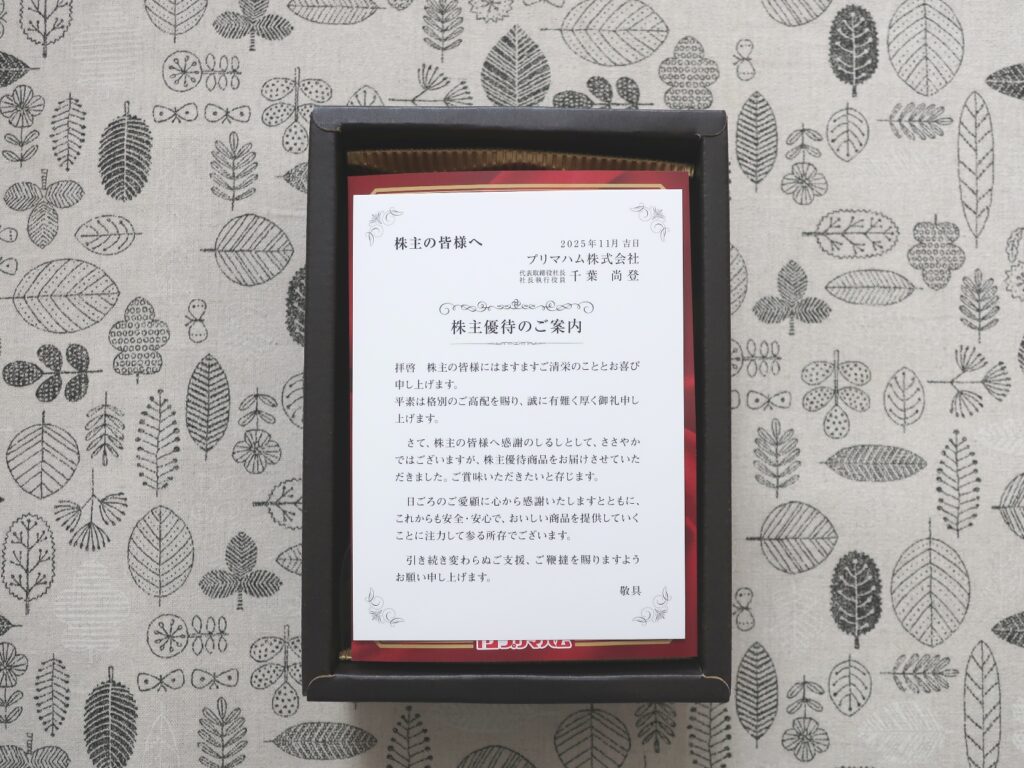 株主の皆様へ
2025年11月吉日
プリマハム株式会社
代表取締役社長
社長執行役員 千葉 尚登
株主優待のご案内
拝啓 株主の皆様にはますますご清栄のこととお喜び
申し上げます。
平素は格別のご高配を賜り、誠に有難く厚く御礼申し
上げます。
さて、株主の皆様へ感謝のしるしとして、ささやか
ではございますが、株主優待商品をお届けさせていた
だきました。ご賞味いただきたいと存じます。
日ごろのご愛顧に心から感謝いたしますとともに、
これからも安全・安心で、おいしい商品を提供していく
ことに注力して参る所存でございます。
引き続き変わらぬご支援、ご鞭撻を賜りますよう
お願い申し上げます。
敬具
プリマハム